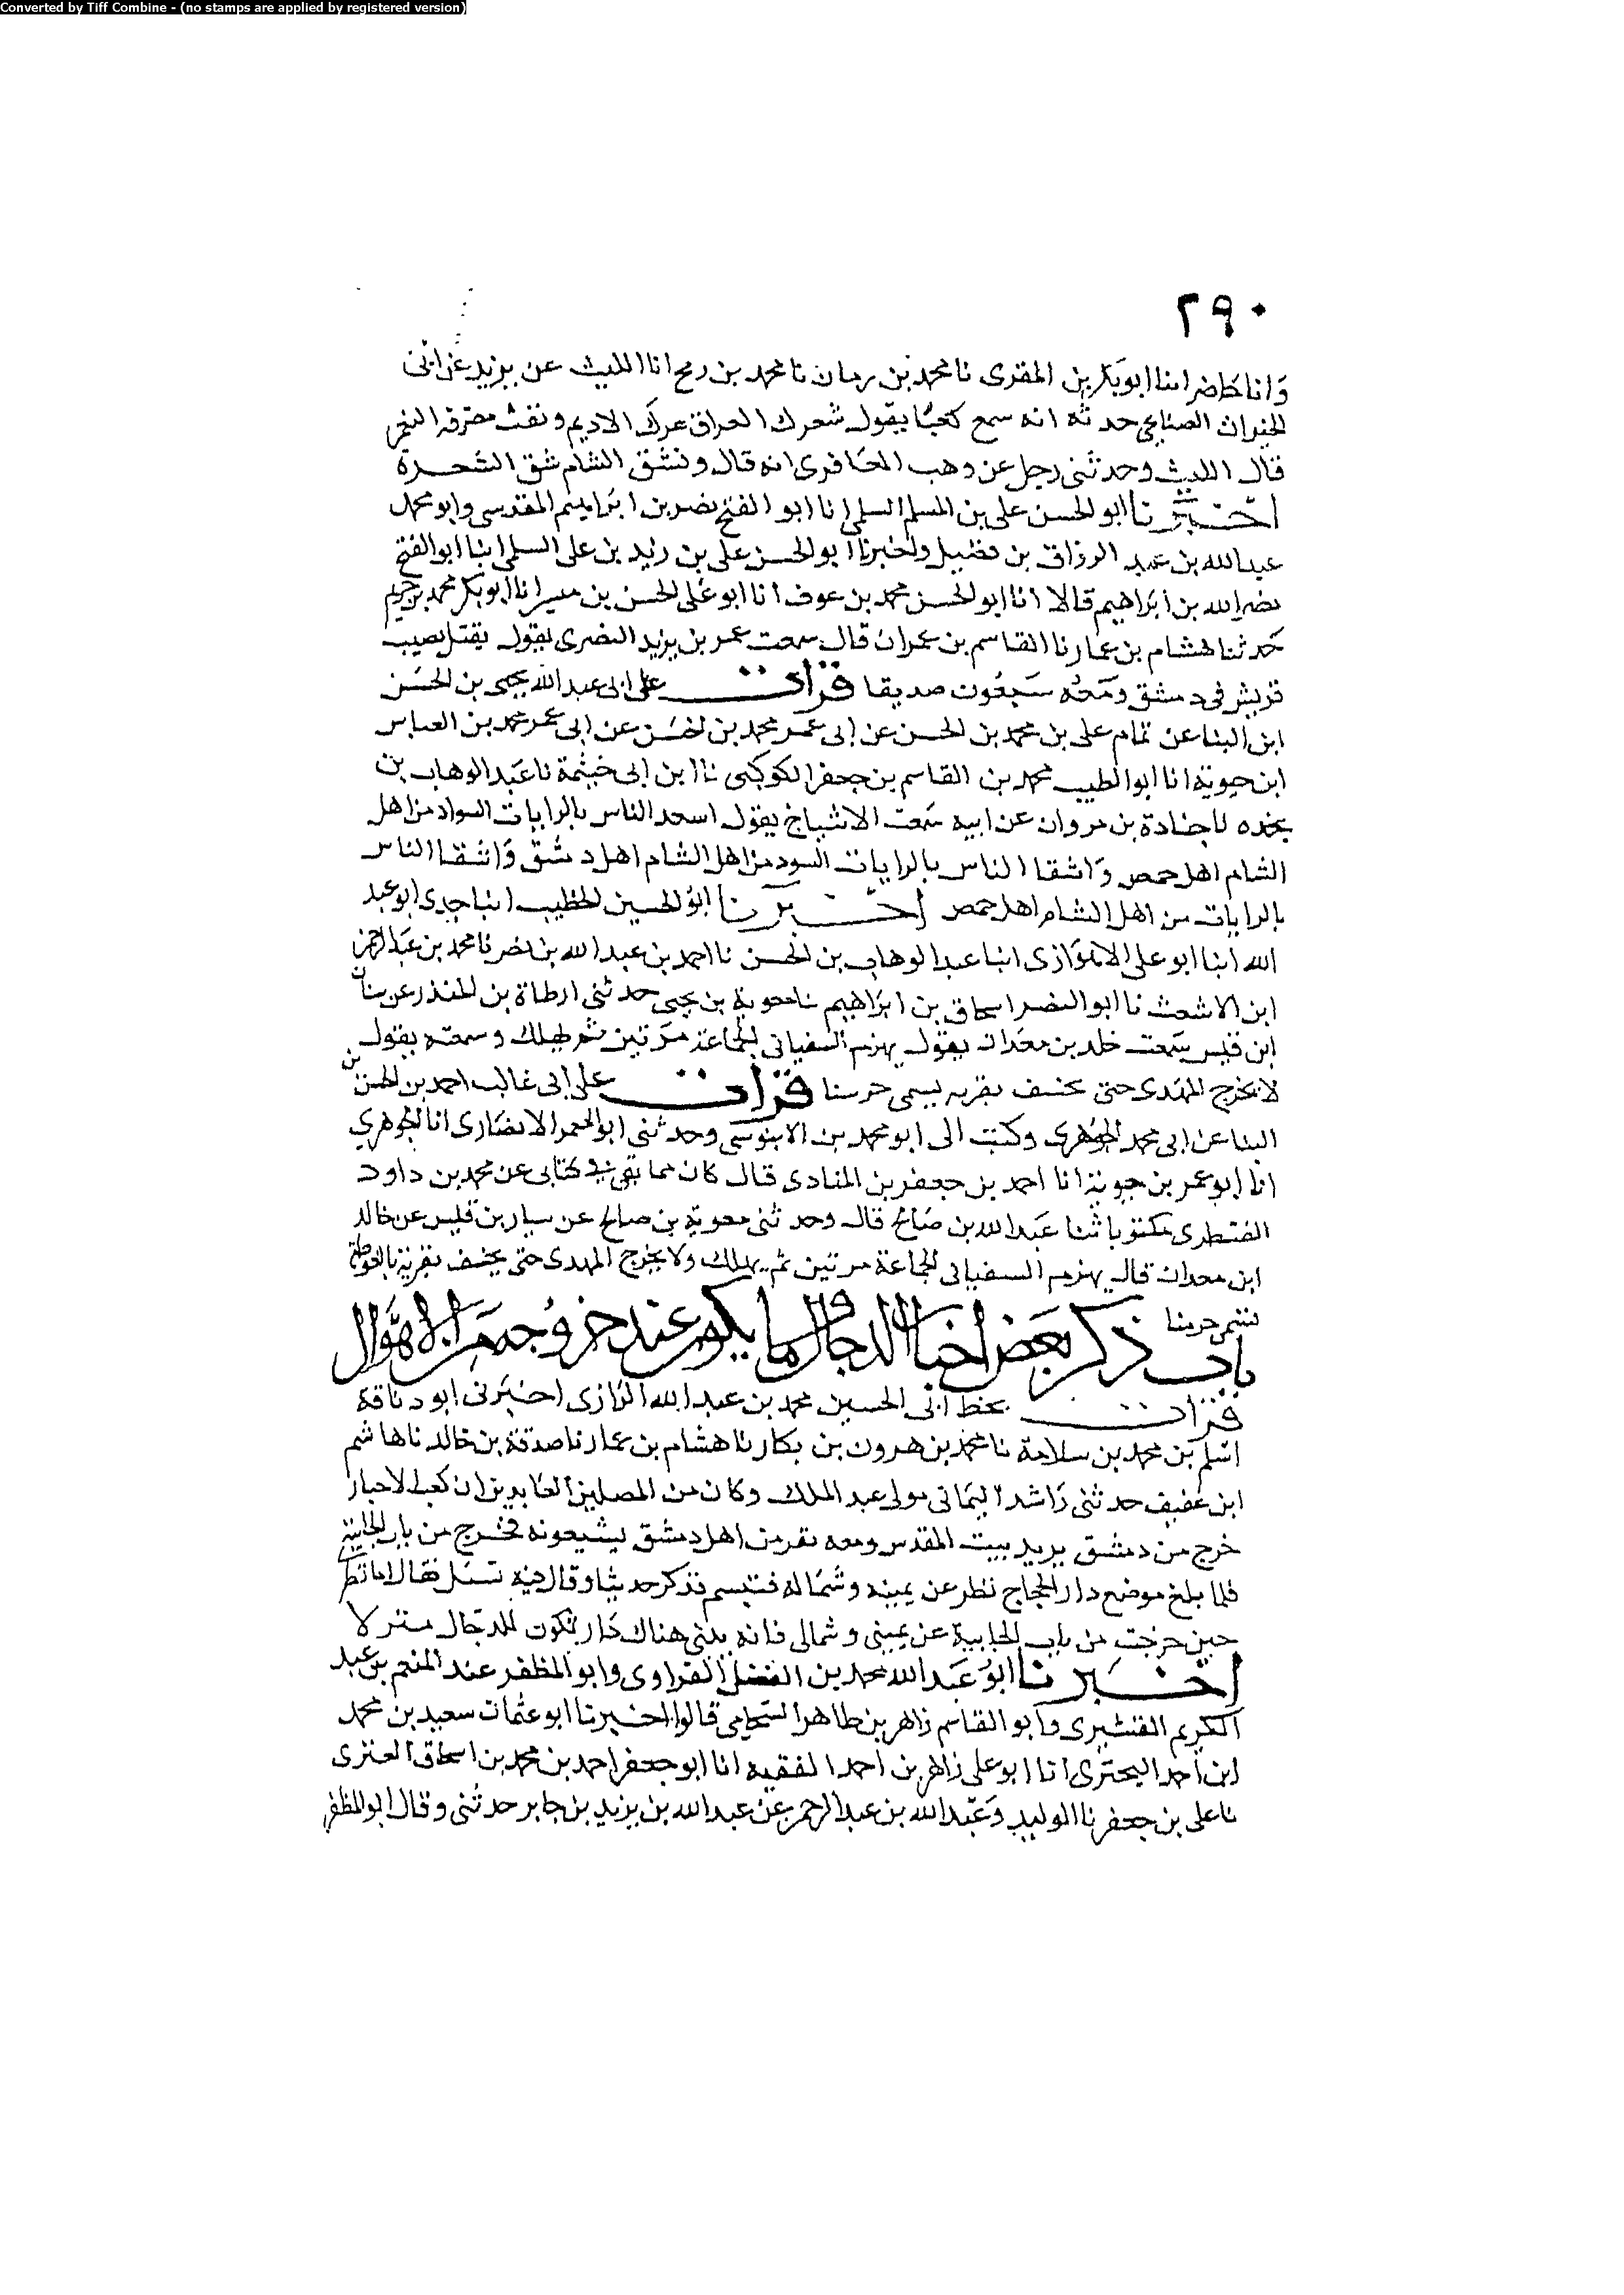 Converted by Tiff Combine - (no stamps are applied by registered version)
٢٩٠
وانا حاضر انبا ابو بكر بن المقرى نا محمد بن زبان نا محمد بن رمح انا الليث عن يزيد عن ابى
الخير ان الصنابحى حدثه انه سمع كعبا يقول ستعرك العراق عرك الاديم وتفت مصر فت البعر
قال الليث وحدثنى رجل عن وهب المعافرى انه قال وتشق الشام شق الشعرة
اخبرنا ابو الحسن على بن المسلم السلمى انا ابو الفتح نصر بن ابراهيم المقدسى وابو محمد
عبد الله بن عبد الرزاق بن فضيل واخبرنا ابو الحسن على بن زيد بن على السلمى انبا ابو الفتح
نصر الله بن ابراهيم قالا انا ابو الحسن محمد بن عوف انا ابو على الحسن بن منير انا ابو بكر محمد بن خريم
حدثنا هشام بن عمار نا القاسم بن عمران قال سمعت عمر بن يزيد النصرى يقول يقتل نصيب
قريش فى دمشق ومعه سبعون صديقا قرات على ابى عبد الله يحيى بن الحسن
ابن البنا عن تمام على بن محمد بن الحسن عن ابى عمر محمد بن الحسن عن ابى عمر محمد بن العباس
ابن حيوية انا ابو الطيب محمد بن القاسم بن جعفر الكوكبى نا ابن ابى خيثمة نا عبد الوهاب بن
نجده نا جنادة بن مروان عن ابيه سمعت الاشياخ يقول اسعد الناس بالرايات السواد من اهل
الشام اهل حمص واشقا الناس بالرايات السود من اهل الشام اهل دمشق واشقا الناس
بالرايات من اهل الشام اهل حمص اخبرنا ابو الحسين الخطيب انبا جدى ابو عبد
الله انبا ابو على الاهوازى انبا عبد الوهاب بن الحسن نا احمد بن عبد الله بن نصر نا محمد بن عبد الرحمن
ابن الاشعث نا ابو النضر اسحاق بن ابراهيم نا معوية بن يحيى حدثنى ارطاة بن المنذر عن سنان
ابن قيس سمعت خلد بن معدان يقول يهزم السفيانى الجماعة مرتين ثم يهلك وسمعته يقول
لا يخرج المهدى حتى يخسف بقرية يسمى حرستا قرات على ابى غالب احمد بن الحسن بن
البنا عن ابى محمد الجوهرى وكتب الى ابو محمد بن الابنوسى وحدثنى ابو المعمر الانصارى انا الجوهرى
انا ابو عمر بن حيوية انا احمد بن جعفر بن المنادى قال كان مما بقى فى كتابى عن محمد بن داود
القنطرى مكتوبا ثنا عبد الله بن صالح قال وحدثنى معوية بن صالح عن سيار بن قيس عن خالد
ابن معدان قال يهزم السفيانى الجماعة مرتين ثم يهلك ولا يخرج المهدى حتى يخسف بقرية بالغوطة
تسمى حرستا
باب ذكر بعض اخبار الدجال وما يكون عند خروجه من الاهوال
قرات بخط ابى الحسين محمد بن عبد الله الرازى اخبرنى ابو دناقة
اسلم بن محمد بن سلامة نا محمد بن هرون بن بكار نا هشام بن عمار نا صدقة بن خالد نا هاشم
ابن عفيف حدثنى راشد اليمانى مولى عبد الملك وكان من المصلين العابدين ان كعب الاحبار
خرج من دمشق يريد بيت المقدس ومعه نفر من اهل دمشق يشيعونه فخرج من باب الجابية
فلما بلغ موضع دار الحجاج نظر عن يمينه وشماله فتبسم فذكر حديثا وقال فيه تسئل فقال اما نظر
حين خرجت من باب الجابية عن يمينى وشمالى فانه يبنى هناك دار تكون للدجال منزلا
اخبرنا ابو عبد الله محمد بن الفضل الفراوى وابو المظفر عبد المنعم بن عبد
الكريم القشيرى وابو القاسم زاهر بن طاهر الشحامى قالوا اخبرنا ابو عثمان سعيد بن محمد
ابن احمد البحترى انا ابو على زاهر بن احمد الفقيه انا ابو جعفر احمد بن محمد بن اسحاق العنزى
نا على بن جعفر نا الوليد وعبد الله بن عبد الرحمن عن عبد الله بن يزيد بن جابر حدثنى وقال ابو المظفر